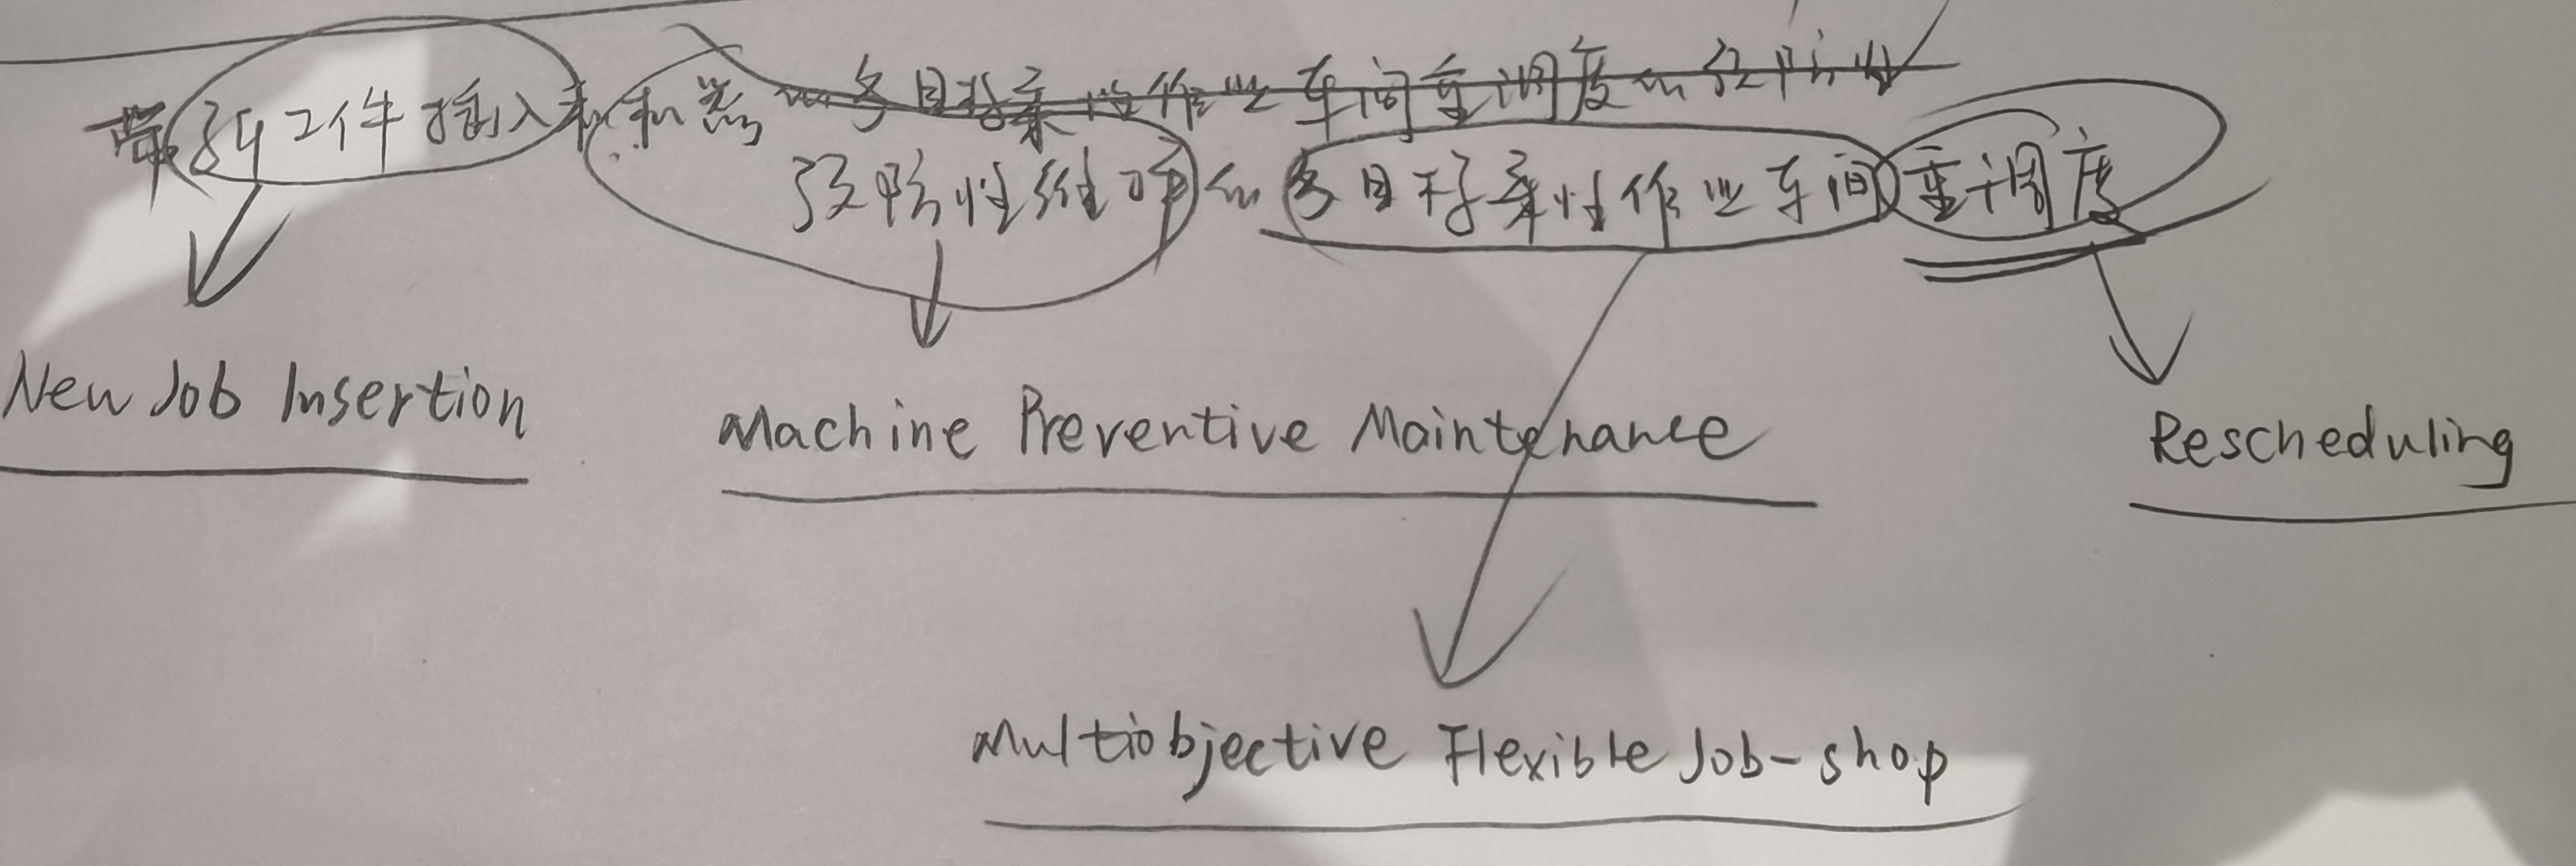 带新工件插入和机器的多目标柔性作业车间重调度的预防性
预防性维护的多目标柔性作业车间重调度
New Job Insertion
Machine Preventive Maintenance
Rescheduling
Multiobjective Flexible Job-shop